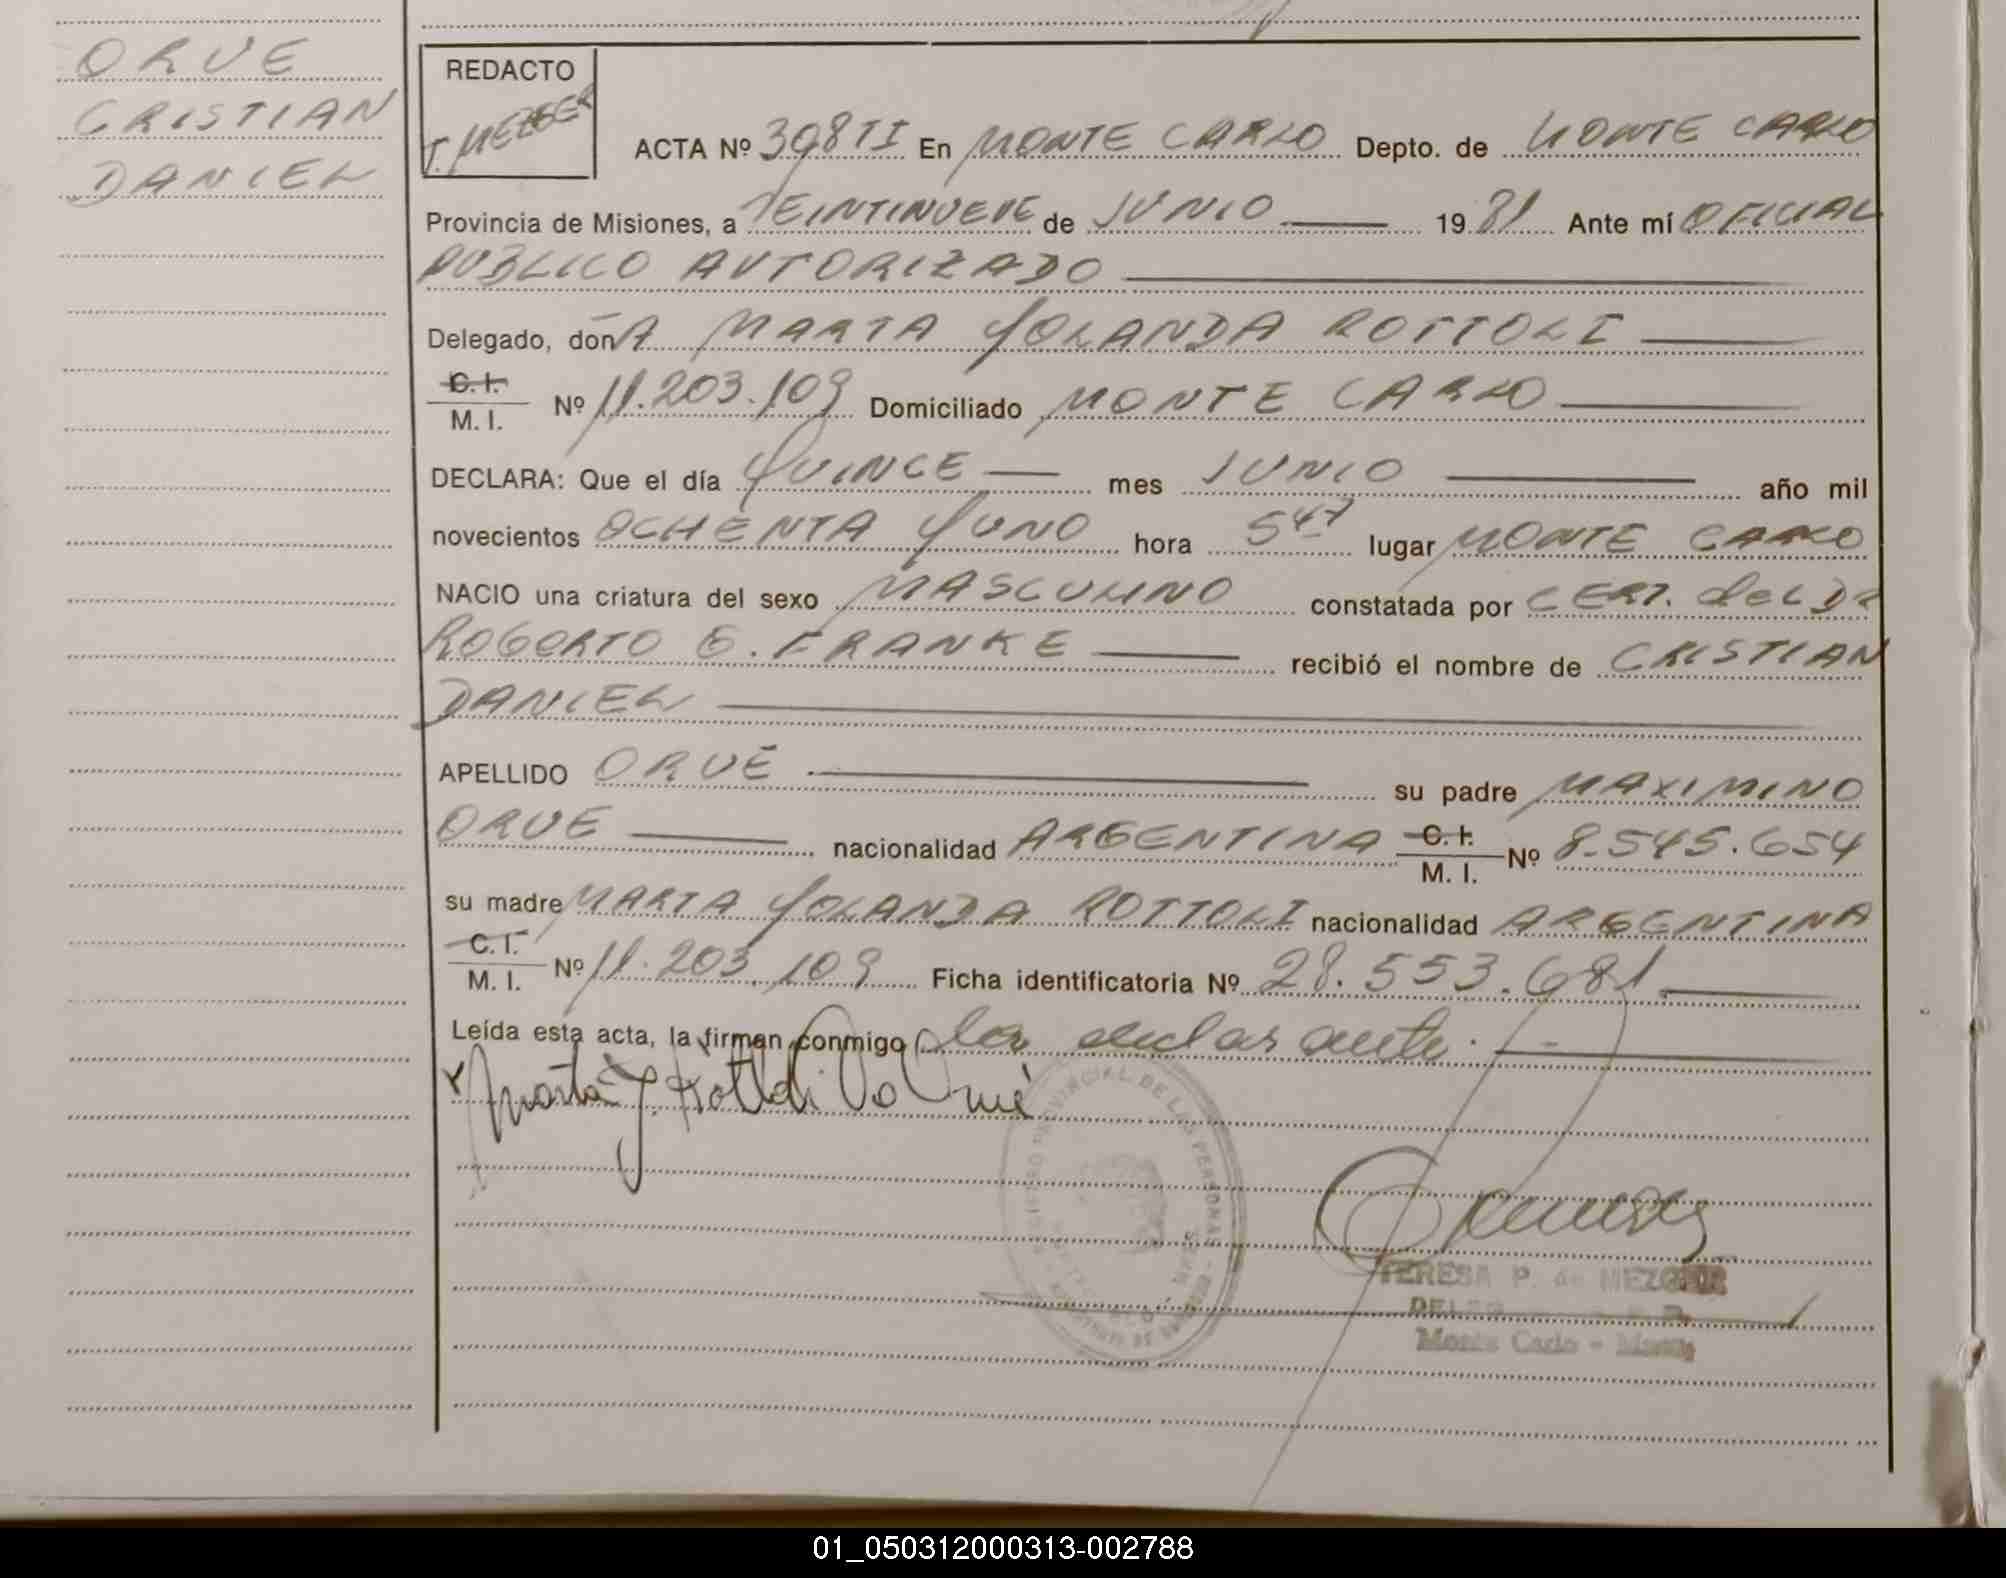 ORUE
CRISTIAN
DANIEL
REDACTO
T. MEZGER
ACTA Nº 398 TI En MONTE CARLO Depto. de MONTE CARLO
Provincia de Misiones, a VEINTINUEVE de JUNIO 1981 Ante mí OFICIAL
PUBLICO AUTORIZADO
Delegado, donA MARTA YOLANDA ROTTOLI
C. I.
M. I. Nº 11.203.109 Domiciliado MONTE CARLO
DECLARA: Que el día QUINCE mes JUNIO año mil
novecientos OCHENTA Y UNO hora 5 47 lugar MONTE CARLO
NACIO una criatura del sexo MASCULINO constatada por CERT. del DR
ROBERTO G. FRANKE recibió el nombre de CRISTIAN
DANIEL
APELLIDO ORUE su padre MAXIMINO
ORUE nacionalidad ARGENTINA C. I. M. I. Nº 8.545.654
su madre MARTA YOLANDA ROTTOLI nacionalidad ARGENTINA
C. I.
M. I. Nº 11.203.109 Ficha identificatoria Nº 28.553.681
Leída esta acta, la firman conmigo la declarante.
Marta Y. Rottoli De Orué
REGISTRO PROVINCIAL DE LAS PERSONAS
TERESA P. de MEZGER
Monte Carlo - Mnes
01_050312000313-002788